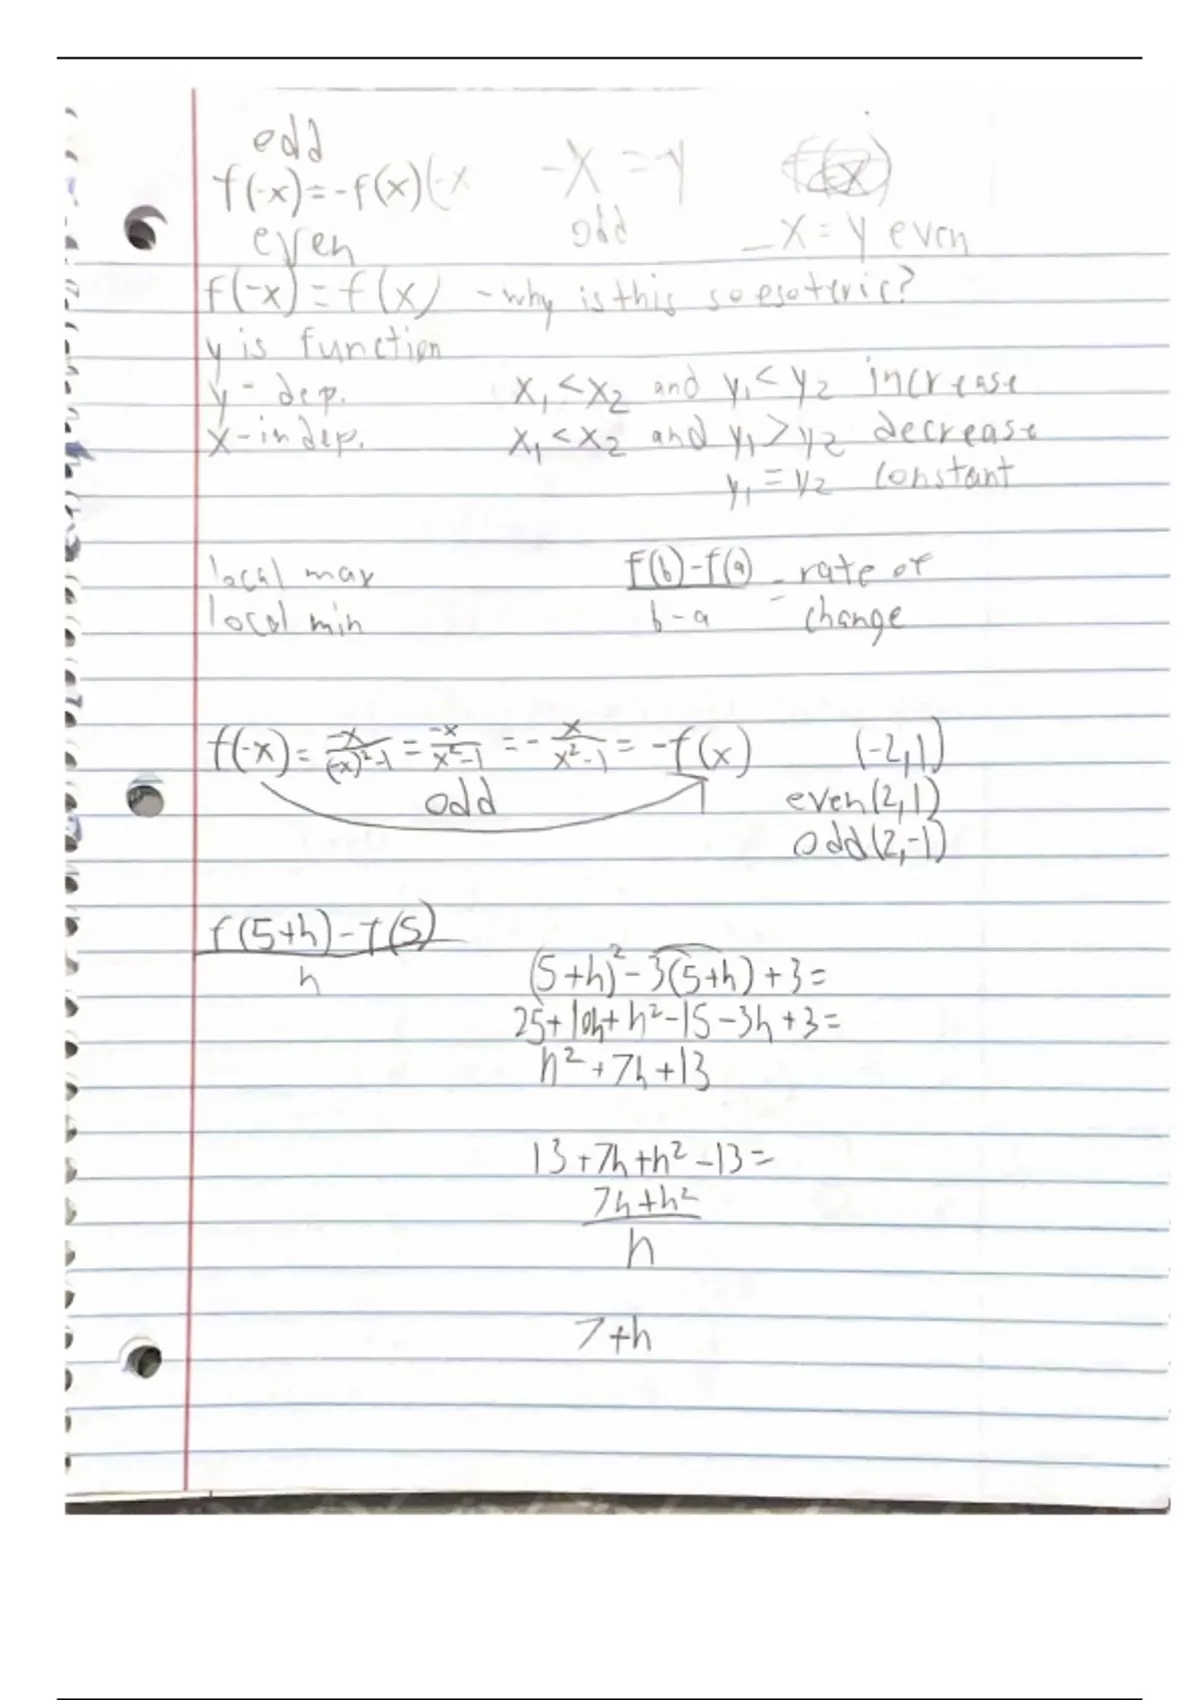 odd
f(-x)=-f(x)(-x -x=y f(x)
even odd -x=y even
f(-x)=f(x) -why is this so esoteric?
y is function
y-dep. x₁<x₂ and y₁<y₂ increase
x-indep. x₁<x₂ and y₁>y₂ decrease
y₁=y₂ constant
local max f(b)-f(a) = rate of
local min b-a change
f(-x)= -x/(-x)²-1 = -x/x²-1 =- x/x²-1 = -f(x) (-2,1)
odd even(2,1)
odd(2,-1)
f(5+h)-f(5)
h (5+h)²-3(5+h)+3=
25+10h+h²-15-3h+3=
h²+7h+13
13+7h+h²-13=
7h+h²
h
7+h